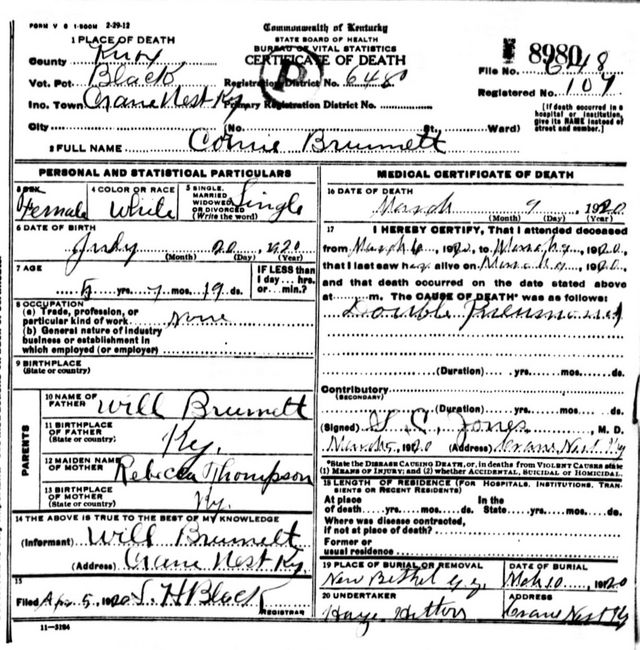 FORM V S 1-500M 2-29-12
Commonwealth of Kentucky
STATE BOARD OF HEALTH
BUREAU OF VITAL STATISTICS
CERTIFICATE OF DEATH
1 PLACE OF DEATH
County Knox
Vot. Pct Black
Inc. Town Crane Nest Ky
Registration District No. 6480
Primary Registration District No.
8980
File No. 6848
Registered No. 107
[If death occurred in a hospital or institution, give its NAME instead of street and number.]
City (No. St. Ward)
2 FULL NAME Connie Brumett
PERSONAL AND STATISTICAL PARTICULARS
3 SEX Female
4 COLOR OR RACE White
5 SINGLE, MARRIED, WIDOWED OR DIVORCED (Write the word) Single
6 DATE OF BIRTH
July 20, 1920
(Month) (Day) (Year)
7 AGE
yrs. 7 mos. 19 ds.
IF LESS than 1 day... hrs. or... min.?
8 OCCUPATION
(a) Trade, profession, or particular kind of work None
(b) General nature of industry business or establishment in which employed (or employer)
9 BIRTHPLACE
(State or country)
PARENTS
10 NAME OF FATHER Will Brumett
11 BIRTHPLACE OF FATHER (State or country) Ky.
12 MAIDEN NAME OF MOTHER Rebecca Thompson
13 BIRTHPLACE OF MOTHER (State or country) Ky.
14 THE ABOVE IS TRUE TO THE BEST OF MY KNOWLEDGE
(Informant) Will Brumett
(Address) Crane Nest Ky.
15
Filed Apr 5, 1920 S. H. Black
REGISTRAR
11-3184
MEDICAL CERTIFICATE OF DEATH
16 DATE OF DEATH
March 9, 1920
(Month) (Day) (Year)
17 I HEREBY CERTIFY, That I attended deceased
from March 6, 1920, to March 9, 1920,
that I last saw her alive on March 9, 1920,
and that death occurred on the date stated above
at m. The CAUSE OF DEATH* was as follows:
Double Pneumonia
(Duration) yrs. mos. ds.
Contributory
(SECONDARY)
(Duration) yrs. mos. ds.
(Signed) Jones, M. D.
March, 1920 (Address) Crane Nest Ky
*State the DISEASE CAUSING DEATH, or, in deaths from VIOLENT CAUSES state (1) MEANS OF INJURY; and (2) whether ACCIDENTAL, SUICIDAL or HOMICIDAL.
18 LENGTH OF RESIDENCE (FOR HOSPITALS, INSTITUTIONS, TRANSIENTS OR RECENT RESIDENTS)
At place of death yrs. mos. ds.
In the State yrs. mos. ds.
Where was disease contracted, if not at place of death?
Former or usual residence
19 PLACE OF BURIAL OR REMOVAL
New Bethel
DATE OF BURIAL
Mch 10, 1920
20 UNDERTAKER
ADDRESS
Crane Nest Ky